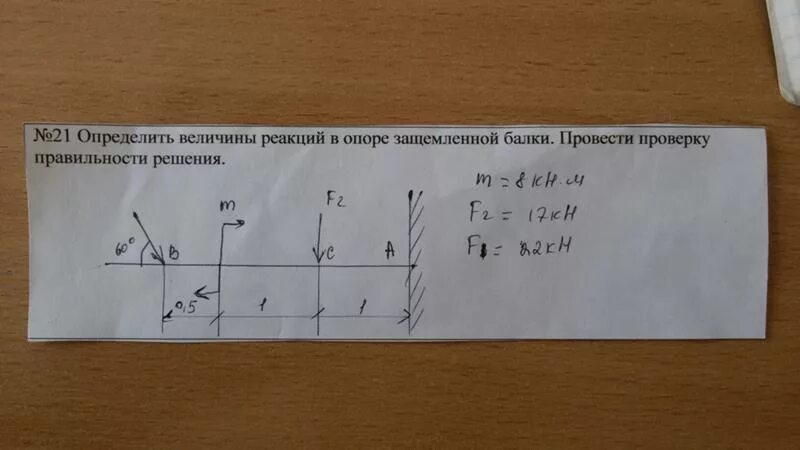 №21 Определить величины реакций в опоре защемленной балки. Провести проверку
правильности решения.
m = 8 кН·м
F2 = 17кН
F1 = 22кН
m
F2
60°
B
C
A
0,5
1
1